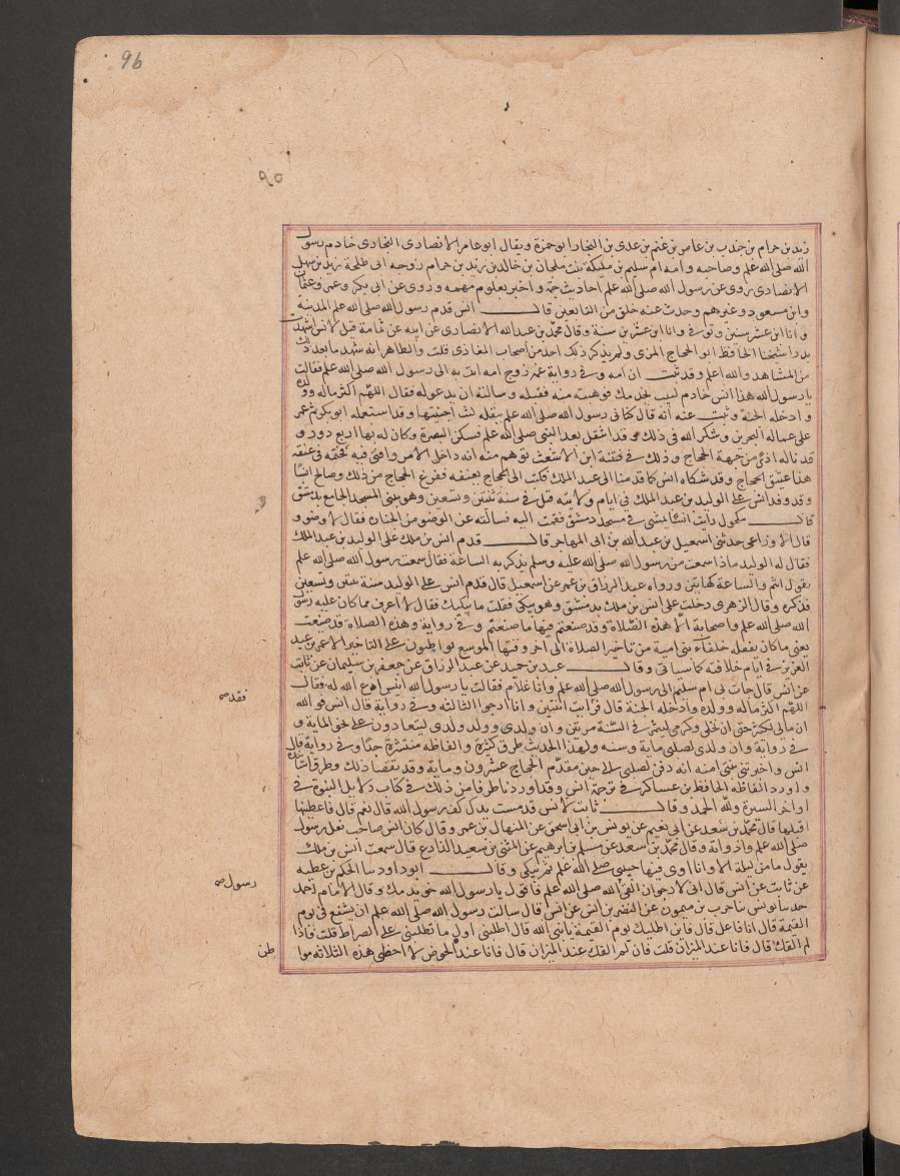 96
٩٥
زيد بن حرام بن جندب بن عامر بن غنم بن عدى بن النجار ابو حمزة ويقال ابو عامر الانصارى النجارى خادم رسول
الله صلى الله علم وصاحبه وامه ام سليم بن مليكة بنت ملحان بن خالد بن زيد بن حرام زوجه ابى طلحة زيد بن سهل
الانصارى روى عن رسول الله صلى الله علم احاديث جمة واخبر بعلوم مهمه وروى عن ابى بكر وعمر وعثمان
وابن مسعود وغيرهم وحدث عنه خلق من التابعين قال انس قدم رسول الله صلى الله علم المدينة
وانا ابن عشر سنين وتوفى وانا ابن عشرين سنة وقال محمد بن عبد الله الانصارى عن ابيه عن ثمامة قيل لانس اشهد
بدرا شيخنا الحافظ ابو الحجاج المزى ولم يذكر ذلك احد من اصحاب المغازى قلت والظاهر انه شهد ما بعد ذلك
من المشاهد والله اعلم وقد ثبت ان امه وفى رواية عمه زوج امه اتت به الى رسول الله صلى الله علم فقالت
يا رسول الله هذا انس خادم لبيب يخدمك فوهبته منه فقبله وسالته ان يدعو له فقال اللهم اكثر ماله وولده
وادخله الجنة وثبت عنه انه قال كنانى رسول الله صلى الله علم ببقله كنت اجتنيها وقد استعمله ابو بكر ثم عمر
على عماله البحرين وشكراه فى ذلك وقد انتقل بعد النبى صلى الله علم فسكن البصرة وكان له بها اربع دور و
قد ناله اذى من جهة الحجاج وذلك فى فتنة ابن الاشعث توهم منه انه داخل الامر وافتى فيه فختمه فى عنقه
هذا عتيق الحجاج وقد شكاه انس كما قدمنا الى عبد الملك فكتب الى الحجاج يعنفه ففزع الحجاج من ذلك وصالح انسا
وقد وفد انس على الوليد بن عبد الملك فى ايام ولايته قيل فى سنة ثنتين وتسعين وهو يبنى المسجد الجامع بدمشق
قال مكحول رايت انسا يمشى فى مسجد دمشق فقمت اليه فسالته عن الوضو من الجنازة فقال لا وضو و
قال الاوزاعى حدثنى اسمعيل بن عبد الله بن ابى المهاجر قال قدم انس بن ملك على الوليد بن عبد الملك
فقال له الوليد ماذا سمعت من رسول الله صلى الله عليه وسلم يذكر به الساعة فقال سمعت رسول الله صلى الله علم
يقول انتم والساعة كهاتين ورواه عبد الرزاق بن عمر عن اسمعيل قال قدم انس على الوليد سنة ثنتين وتسعين
فذكره وقال الزهرى دخلت على انس بن ملك بدمشق وهو يبكى فقلت ما يبكيك فقال لا اعرف مما كان عليه رسول
الله صلى الله علم واصحابه الا هذه الصلاة وقد صنعتم فيها ما صنعتم وفى رواية وهذه الصلاة قد ضيعت
يعنى ما كان يفعله خلفاء بنى امية من تاخير الصلاة الى اخر وقتها الموسع كانوا يواظبون على التاخير الا عمر بن عبد
العزيز فى ايام خلافته كما سياتى وقال عبد بن حميد عن عبد الرزاق عن جعفر بن سليمان عن ثابت
عن انس قال جات بى ام سليم الى رسول الله صلى الله علم وانا غلام فقالت يا رسول الله انيس ادع الله له فقال
اللهم اكثر ماله وولده وادخله الجنة قال فرايت اثنتين وانا ارجوا الثالثة وفى رواية قال انس فو الله
ان مالى لكثير حتى ان نخلى وكرمى ليثمر فى السنة مرتين وان ولدى وولد ولدى ليتعادون على نحو الماية و
فى رواية وان ولدى لصلبى ماية وسته ولهذا الحديث طرق كثيرة والفاظه منتشرة جدا وفى رواية قال
انس واخبرتنى بنتى امنه انه دفن لصلبى الى حين مقدم الحجاج عشرون وماية وقد تقصا ذلك وطرقه اسانيده
واورد الفاظه الحافظ بن عساكر فى ترجمة انس وقد اوردنا طرفا من ذلك فى كتاب دلايل النبوة فى
اواخر السيرة ولله الحمد وقال ثابت لانس قد مست يدك كف رسول الله قال نعم قال فاعطنيها
اقبلها قال محمد بن سعد عن ابى نعيم عن يونس بن ابى اسحق عن المنهال بن عمر وقال كان انس صاحب نعل رسول
صلى الله علم واداوته وقال محمد بن اسعد عن مسلم بن ابراهيم عن المثنى بن سعيد الذارع قال سمعت انس بن ملك
يقول ما من ليلة الا وانا ارى فيها حبيبى صلى الله علم ثم يبكى وقال ابو داود سا الحكم بن عطيه
عن ثابت عن انس قال انى لارجو ان القى الله صلى الله علم فاقول يا رسول الله خويدمك وقال الامام احمد
حدسا يونس سا حرب بن ميمون عن النضر بن انس عن انس قال سالت رسول الله صلى الله علم ان يشفع فى يوم
القيمة قال انا فاعل قال فاين اطلبك يوم القيمة يا نبى الله قال اطلبنى اول ما تطلبنى على الصراط قلت فاذا
لم القك قال فانا عند الميزان قلت فان لم القك عند الميزان قال فانا عند الحوض لا اخطى هذه الثلاثة موا
فقد صه
رسول صه
طن